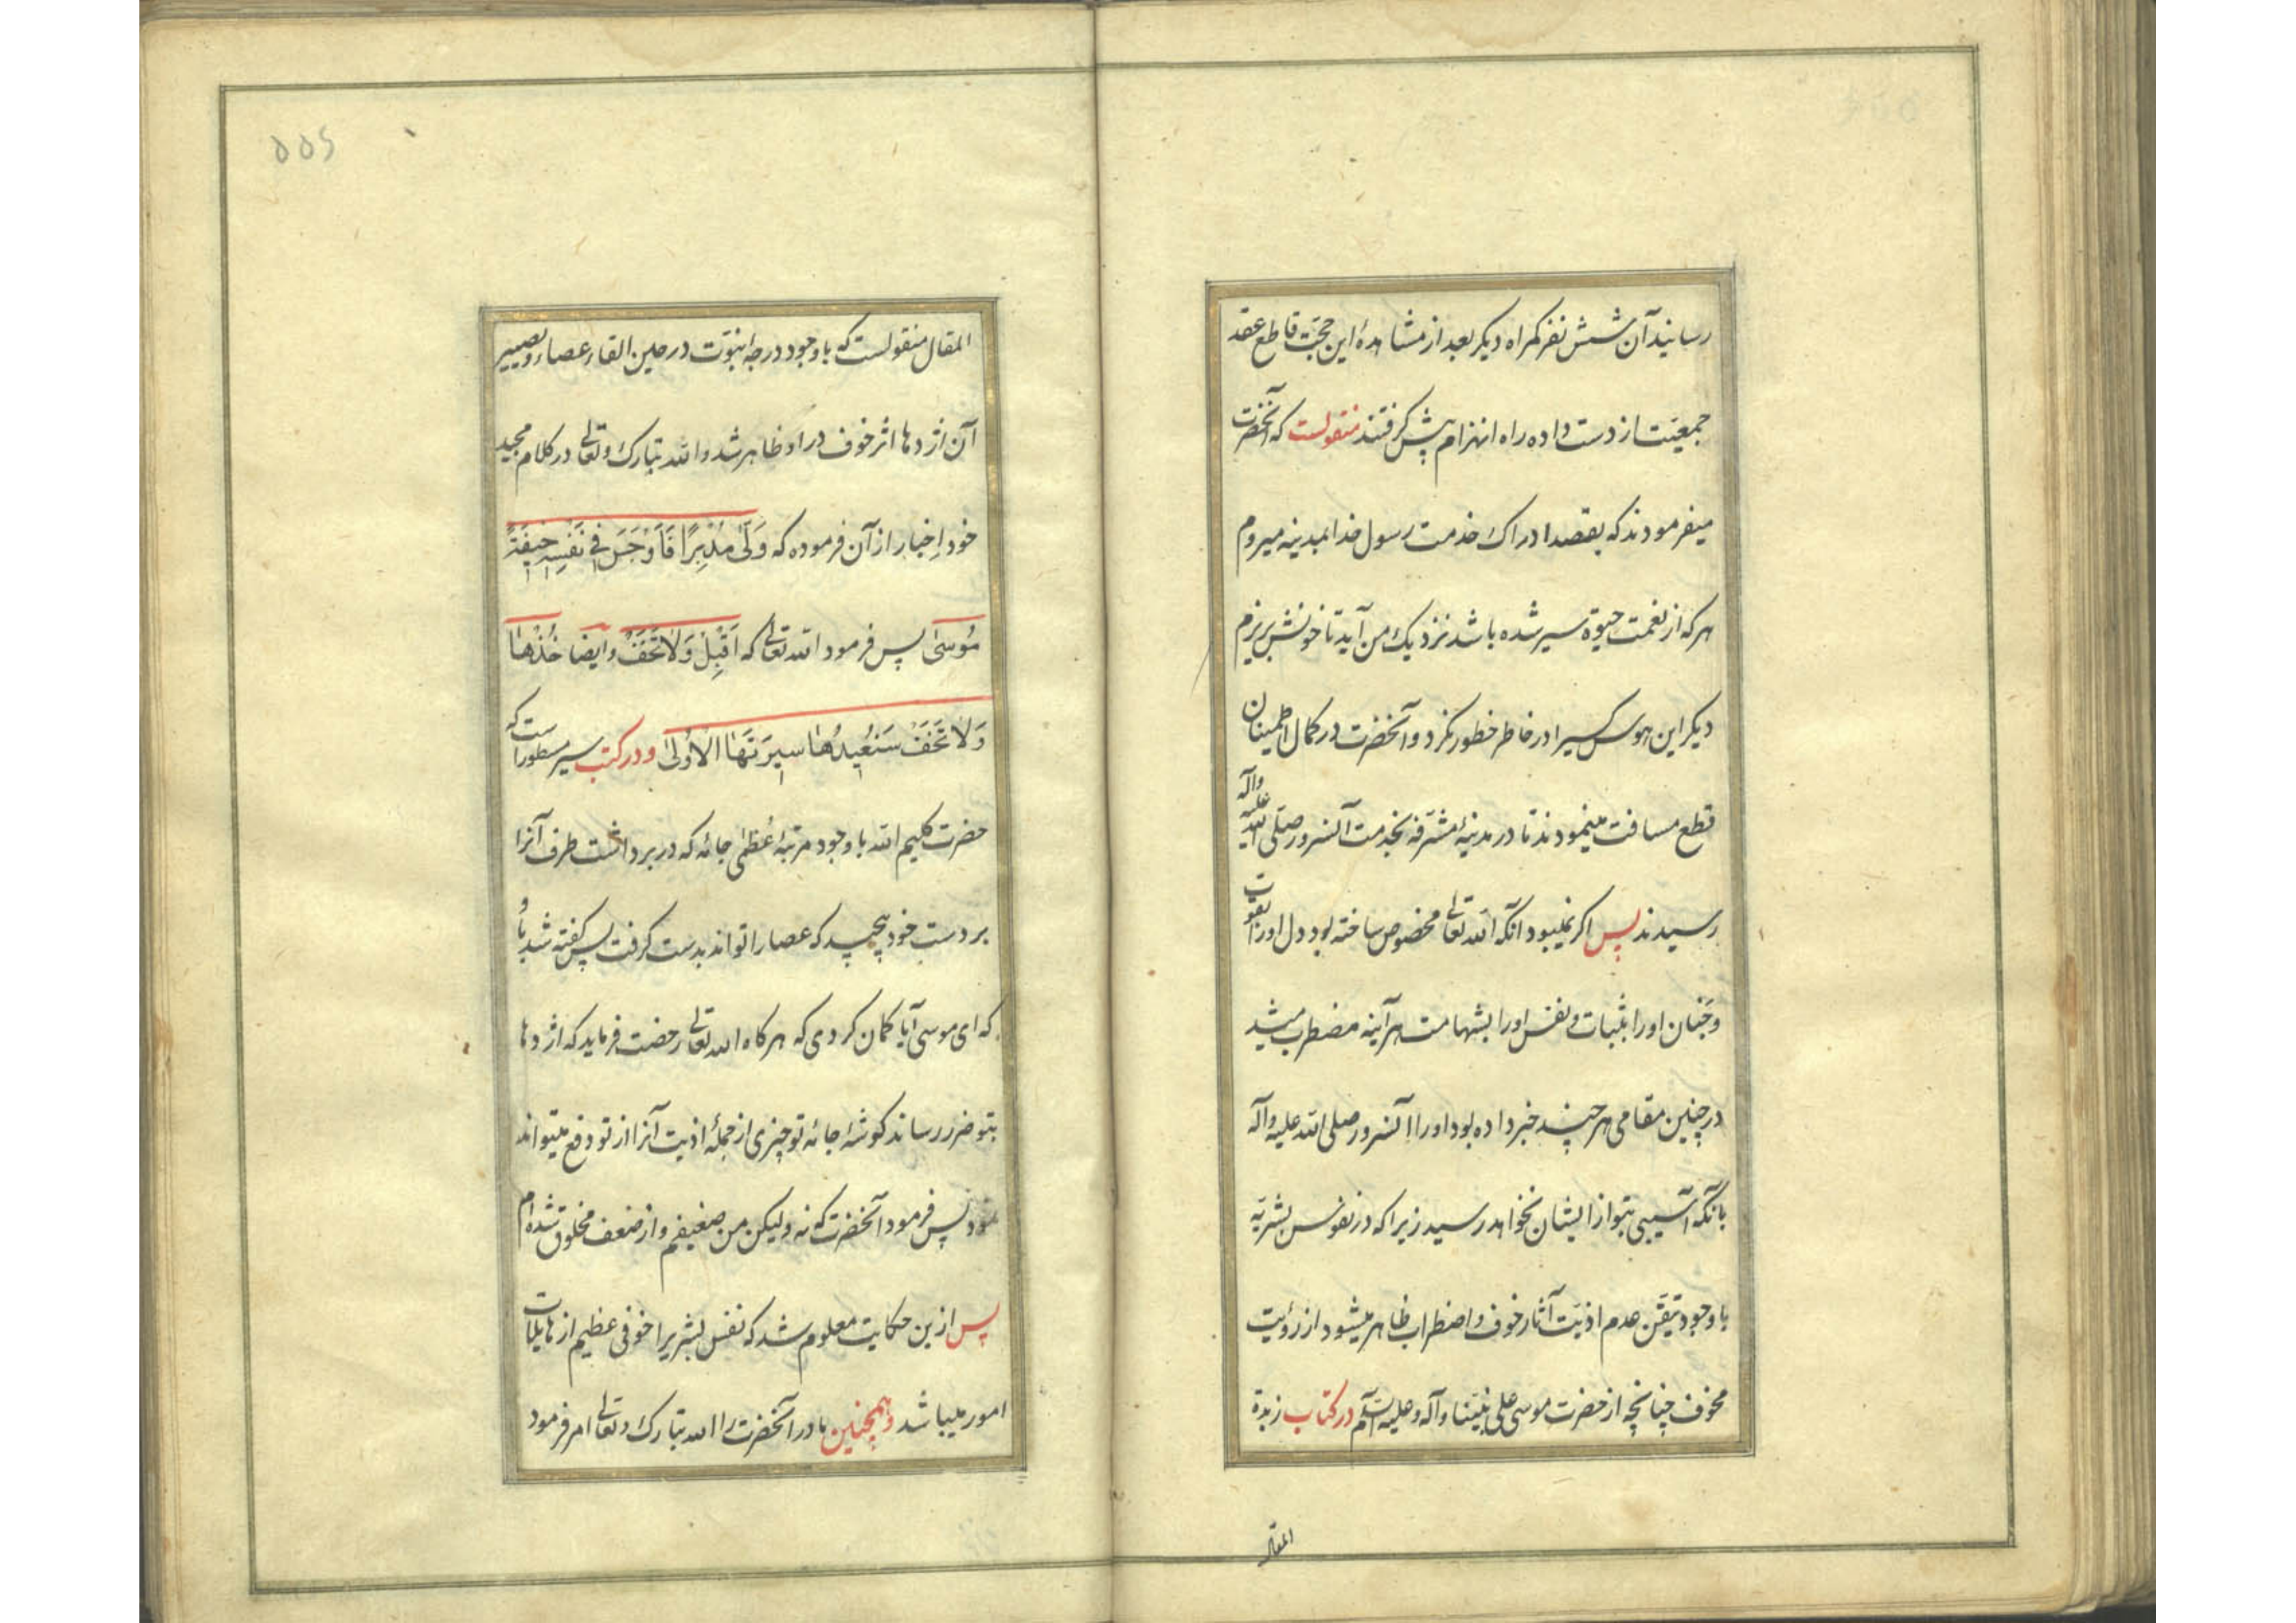 رسانید آن شش نفر کمراه دیکر بعد از مشاهدهٔ این حجّت قاطع عقد
جمعیّت از دست داده راه انهزام پیش کرفتند منقولست که آنحضرت
میفرمودند که بقصد ادراک خدمت رسول خدا بمدینه میروم
هر که از نعمت حیوة سیر شده باشد نزدیک من آید تا خونش بریزم
دیکر این هوس کسیرا در خاطر خطور نکرد و آنحضرت در کمال اطمینان
قطع مسافت مینمودند تا در مدینهٔ مشرّفه بخدمت آنسرور صلی الله علیه وآله
رسیدند پس اکر نمیبود آنکه الله تعالی مخصوص ساخته بود دل اورا بقوت
و جنان اورا بثبات و نفس اورا بشهامت هرآینه مضطرب میشد
در چنین مقامی هر چند خبر داده بود اورا آنسرور صلی الله علیه وآله
بآنکه آسیبی بتو از ایشان نخواهد رسید زیرا که در نفوس بشریّه
با وجود تیقّن عدم اذیّت آثار خوف و اضطراب ظاهر میشود از رؤیت
مخوف چنانچه از حضرت موسی علی نبیّنا وآله وعلیه السّلم در کتاب زبدة
المقال
۵۵۶
المقال منقولست که با وجود درجهٔ نبوّت در حین القاء عصا و تصییر
آن اژدها اثر خوف در او ظاهر شد و الله تبارک و تعالی در کلام مجید
خود اِخبار از آن فرموده که وَلّی مُدْبِرًا فَاَوْجَسَ فی نَفْسِهِ خیفَةً
مُوسی پس فرمود الله تعالی که اَقْبِلْ وَلا تَخَفْ وایضا خُذْها
وَلا تَخَفْ سَنُعیدُها سیرَتَهَا الاُولی و در کتب سیر مسطور است که
حضرت کلیم الله با وجود مرتبهٔ عُظمی جامهٔ که در بر داشت طرف آنرا
بر دست خود پیچید که عصا را تواند بدست کرفت پس کفته شد باو
که ای موسی آیا کمان کردی که هرکاه الله تعالی رخصت فرماید که اژدها
بتو ضرر رساند کوشهٔ جامهٔ تو چیزی از جملهٔ اذیت آنرا از تو دفع میتواند
نمود پس فرمود آنحضرت که نه ولیکن من ضعیفم و از ضعف مخلوق شده‌ام
پس ازین حکایت معلوم شد که نفس بشریرا خوفی عظیم از هایلات
امور میباشد و همچنین مادر آنحضرت را الله تبارک و تعالی امر فرمود